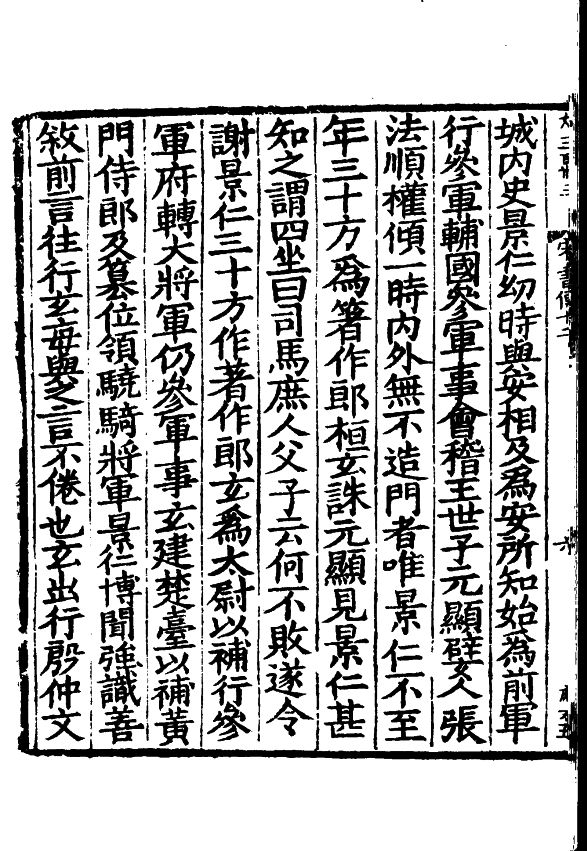 城内史景仁幼時與安相及爲安所知始爲前軍
行參軍輔國參軍事會稽王世子元顯嬖人張
法順權傾一時内外無不造門者唯景仁不至
年三十方爲著作郎桓玄誅元顯見景仁甚
知之謂四坐曰司馬庶人父子云何不敗遂令
謝景仁三十方作著作郎玄爲太尉以補行參
軍府轉大將軍仍參軍事玄建楚臺以補黃
門侍郎及篡位領驍騎將軍景仁博聞強識善
敘前言往行玄每與之言不倦也玄出行殷仲文